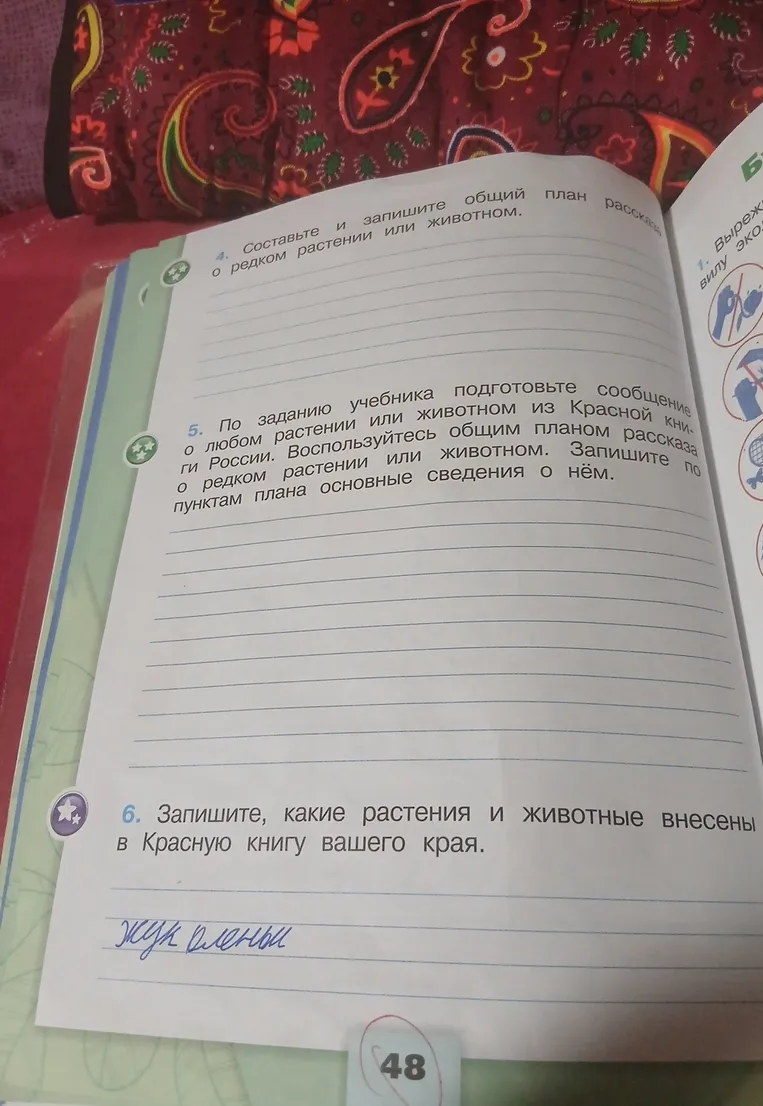 4. Составьте и запишите общий план рассказа
о редком растении или животном.
5. По заданию учебника подготовьте сообщение
о любом растении или животном из Красной кни-
ги России. Воспользуйтесь общим планом рассказа
о редком растении или животном. Запишите по
пунктам плана основные сведения о нём.
6. Запишите, какие растения и животные внесены
в Красную книгу вашего края.
жук оленьи
48
1. Выреж
вилу эко